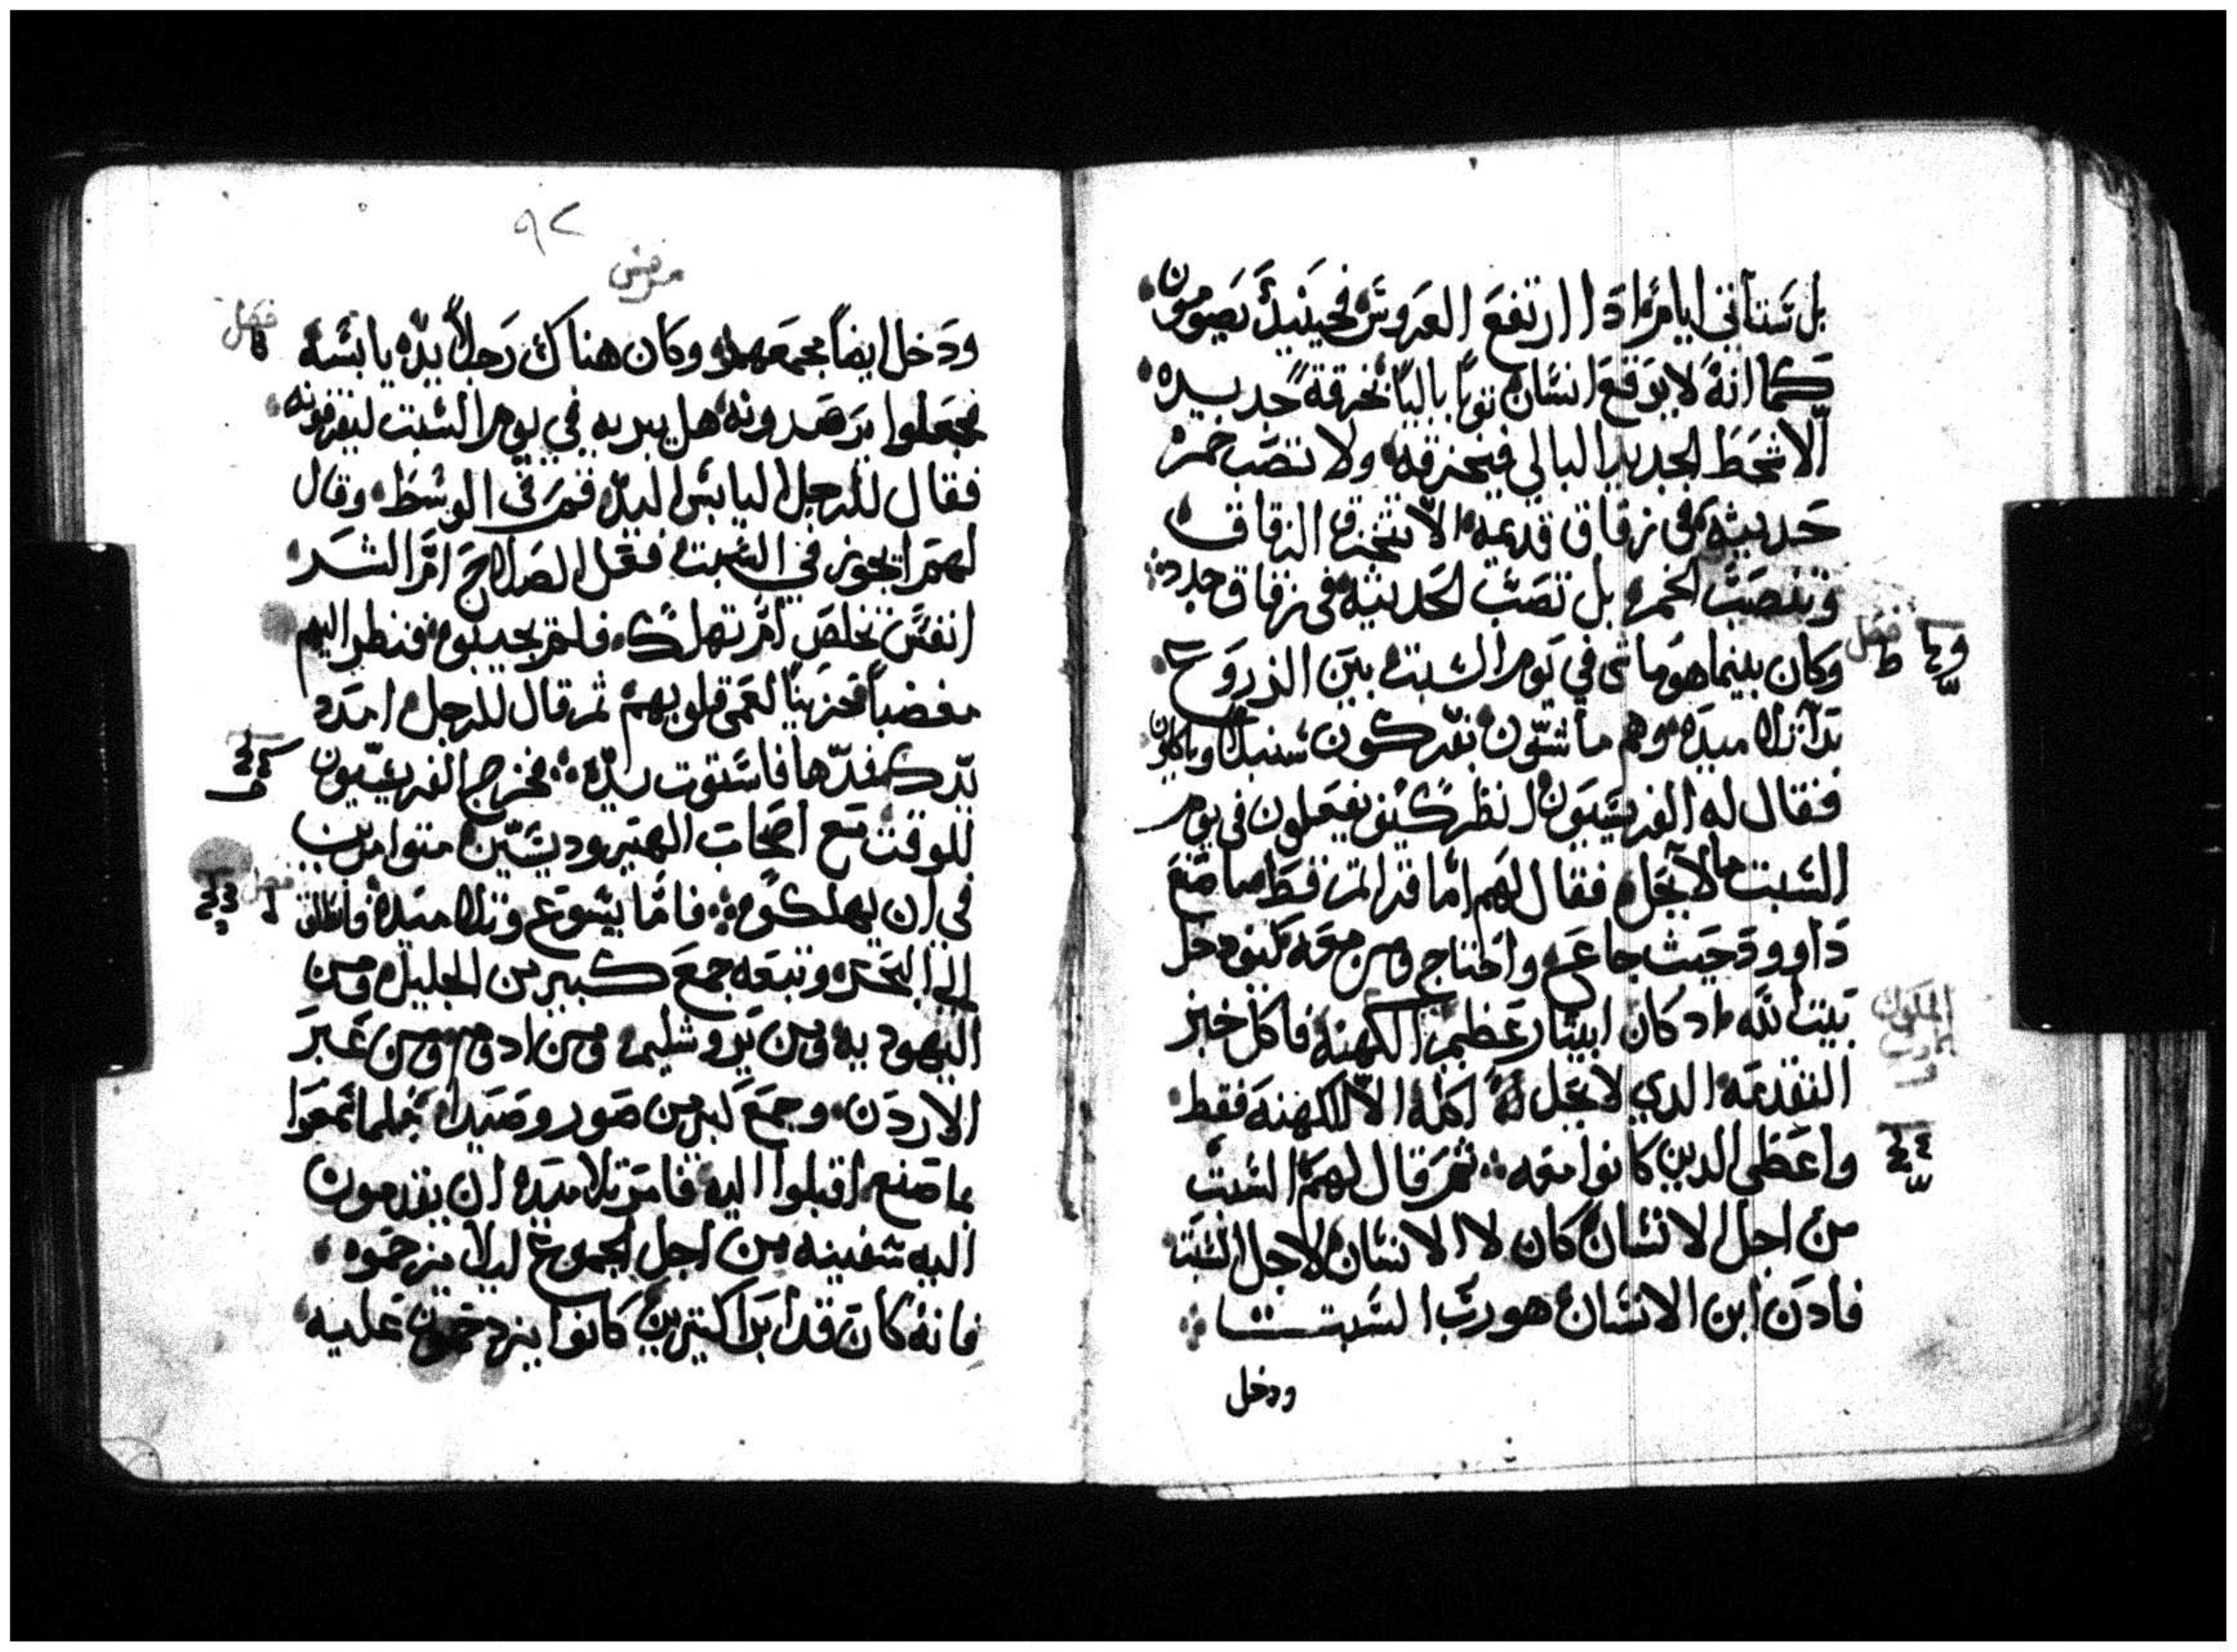 بل ستاتي ايام اذا ارتفع العروس فحينيذ يصومون
كما انه لا يرقع انسان ثوبا باليا بخرقة جديده
الا شحط الجديد البالي فيخرقه ولا تصب خمره
حديثه في زقاق قديمه الا تنخرق الزقاق
وتنصب الخمره بل تصب الحديثه في زقاق جدد
فصل ط
وكان بينما هو ماشي في يوم السبت بين الزروع
تلاميده وهم ماشيون يفركون سنبلا وياكلون
فقال له الفريسيون انظر كيف يفعلون في يوم
السبت ما لا يحل فقال لهم اما قراتم قط ما صنع
داوود حيث جاع واحتاج ومن معه كيف دخل
بيت الله اد كان ابيثار عظيم الكهنة فاكل خبز
الملوك
التقدمه الدي لا يحل له اكله الا للكهنه فقط
واعطى الدين كانوا معه ثم قال لهم السبت
من اجل الانسان كان لا الانسان لاجل السبت
فادن ابن الانسان هو رب السبت
ودخل
٩٢
مرقس
فصل
ودخل ايضا مجمعهم وكان هناك رجلا يده يابسه
فجعلوا يرصدونه هل يبريه في يوم السبت ليقرفونه
فقال للرجل اليابس اليد قم في الوسط وقال
لهم ايجوز في السبت فعل الصلاح ام الشر
انفس تخلص ام تهلك فلم يجيبوه فنظر اليهم
مغضبا حزينا لعمى قلوبهم ثم قال للرجل امدد
يدك فمدها فاستوت يده فخرج الفريسيون
للوقت مع اصحاب الهيروديسيين متوامرين
فصل
في ان يهلكوه فاما يسوع وتلاميده فانطلق
الى البحر وتبعه جمع كبير من الجليل ومن
اليهوديه ومن يروشليم ومن ادوم ومن عبر
الاردن وجمع كبير من صور وصيدا فلما سمعوا
بما صنع اقبلوا اليه فامر تلاميده ان يقدمون
اليه سفينه من اجل الجموع ليلا يزحموه
فانه كان قد ابرا كتيرين كانوا يزدحمون عليه